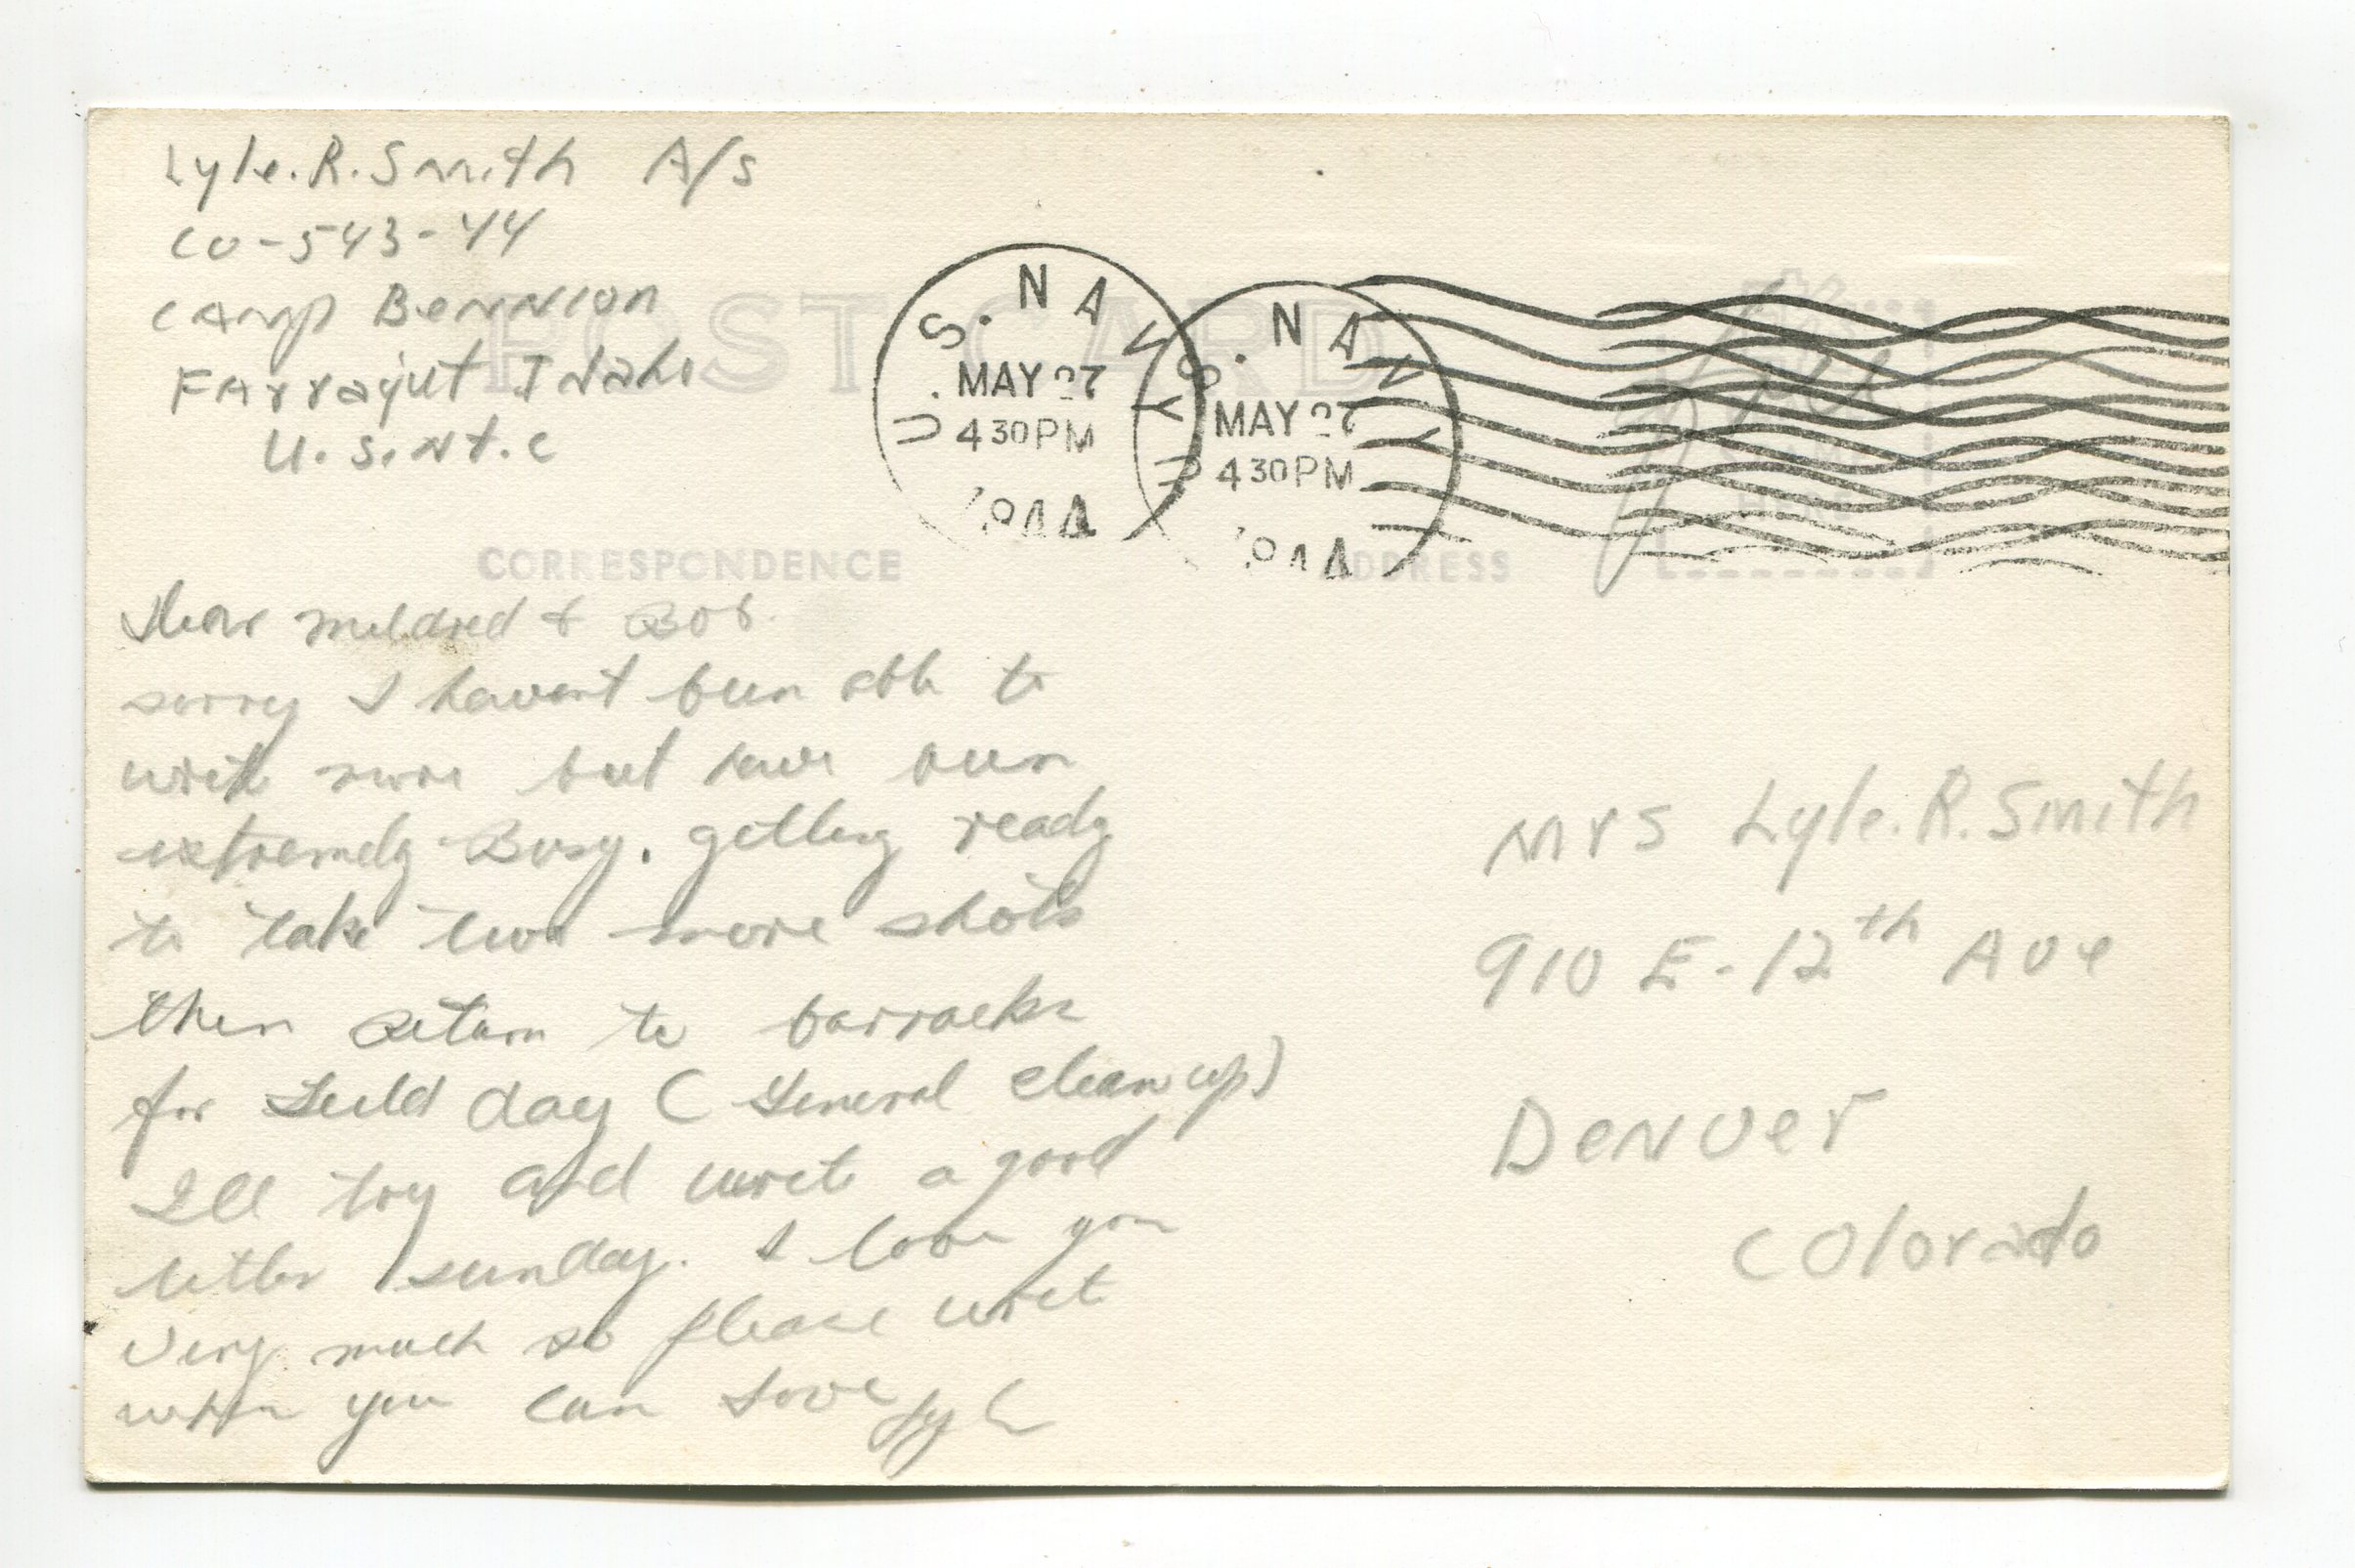 Lyle.R.Smith A/S
CO-543-44
CAMP BENNION
FArragut Idaho
U.S.N.T.C
POST CARD
U.S. NAVY
MAY 27
430PM
1944
U.S. NAVY
MAY 27
430PM
1944
Free
HERE
CORRESPONDENCE
ADDRESS
Dear Mildred & Bob.
sorry I havent been able to
write more but have been
extremely Busy. getting ready
to take two more shots
then return to barracks
for Field day (General clean up)
I'll try and write a good
letter sunday. I love you
very much so please write
when you can Love Lyle
Mrs Lyle.R.Smith
910 E-12th Ave
Denver
Colorado